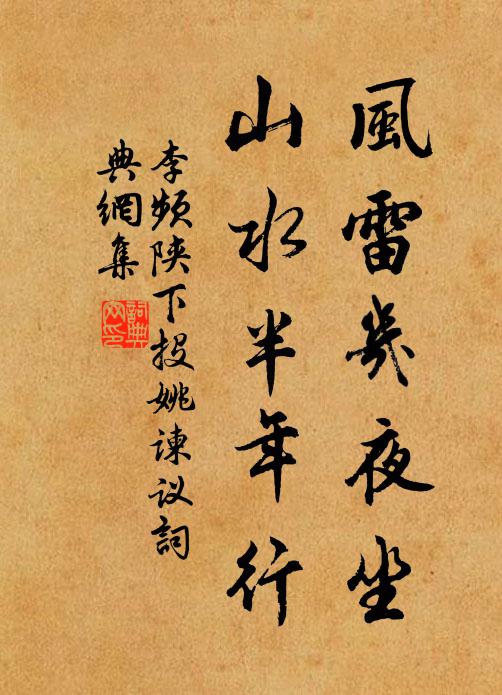 風雷幾夜坐
山水半年行
李頻陝下投姚諫议詞
典網集
詞典
网印